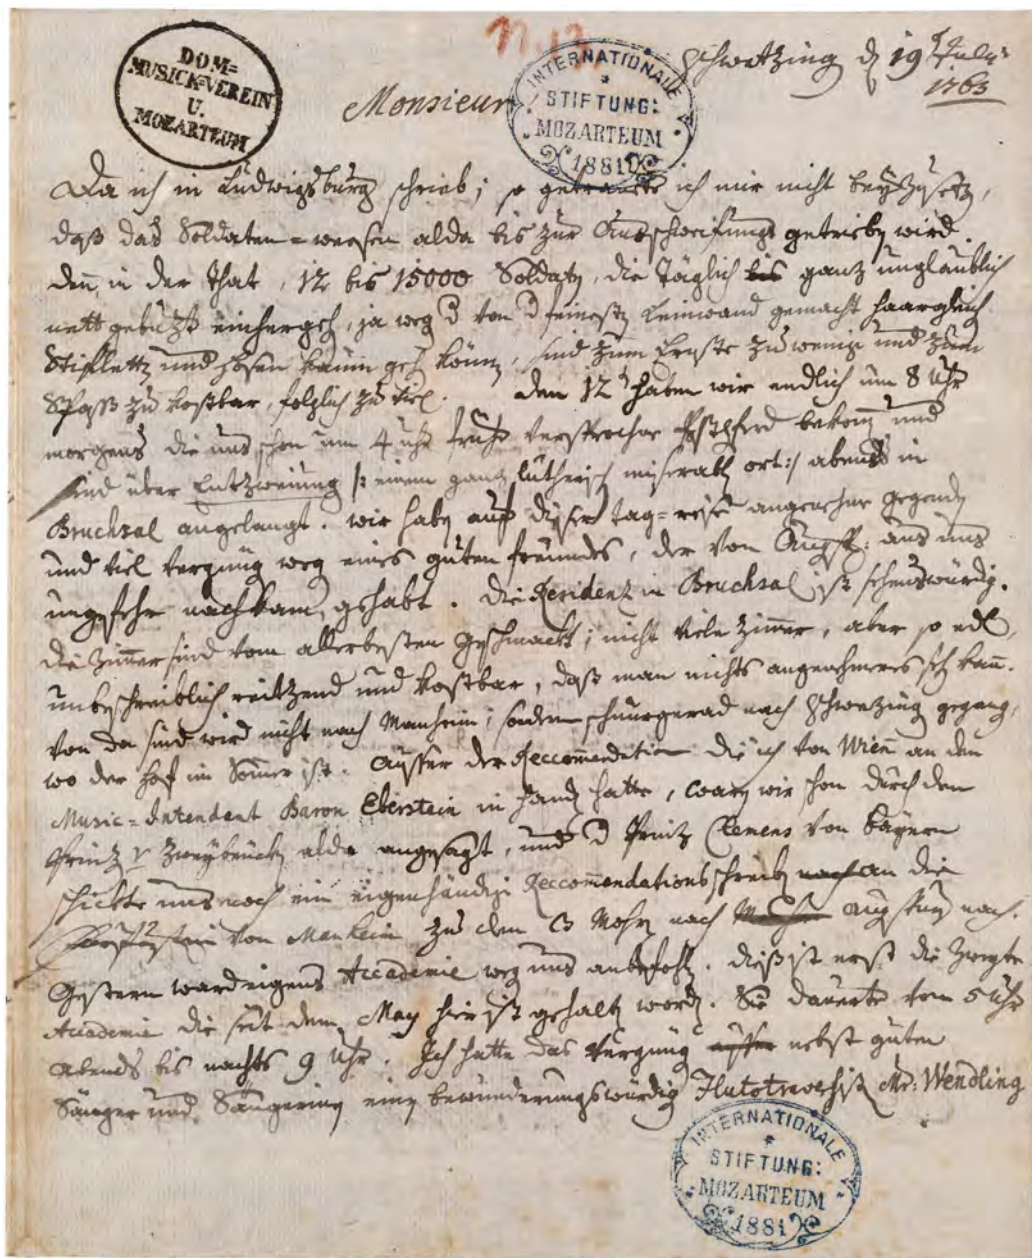 DOM=
MUSICK=VEREIN
U.
MOZARTEUM
N. 13.
INTERNATIONALE
STIFTUNG:
MOZARTEUM
1881
Schwetzing d 19t Julii
1763
Monsieur
Da ich in Ludwigsburg schrieb; so getrauete ich mir nicht beyzusetz,
daß das Soldaten=weesen alda bis zur Ausschweifung getrieb wird.
den in der that, 12 bis 15000 Soldat, die Täglich bis ganz unglaublich
nett gebutzt einhergeh, ja weg d von d feinest Leinwand gemacht haargleich
Stiflett und Hosen kaum geh könn, sind zum Ernste zu wenig und zum
Spaß zu kostbar, folglich zu viel. den 12t haben wir endlich um 8 Uhr
morgens die uns schon um 4 uhr frühe versprochne Postpferd bekom und
sind über Entzweiung /: einem ganz lutherisch miserabl ort :/ abends in
Bruchsal angelangt. wir hab auf dieser tag=reise angenehme gegend
und viel vergnüg weg eines guten freundes, der von Augsp: aus uns
ungefehr nachkam, gehabt. Die Residenz in Bruchsal ist sehenswürdig.
die Zimer sind vom allerbesten geschmackt; nicht viele Zimer, aber so edl,
unbeschreiblich reitzend und kostbar, daß man nichts angenehmeres seh kan.
Von da sind wird nicht nach Manheim; sondern schnurgerad nach Schwezing gegang,
wo der Hof im Somer ist. ausser der Reccomendation die ich von Wien an den
Music=Intendent Baron Eberstein in hand hatte, war wir schon durch den
Prinz v Zweybrück alda angesagt, und d Prinz Clemens von Bayern
schickte uns noch ein eigenhändige Reccomendations schreib nach an die
von Manheim zu den 3 Mohrn nach Augspurg nach.
Gestern ward eigens Accademie weg uns anbefohl. dieß ist erst die Zweyte
Accademie die seit dem May hier ist gehalt word. Sie dauerte von 5 Uhr
abends bis nachts 9 Uhr. Ich hatte das vergnüg ausser nebst guten
Sänger und Sängerin ein bewunderungswürdig Flutotraversist Mr: Wendling
INTERNATIONALE
STIFTUNG:
MOZARTEUM
1881